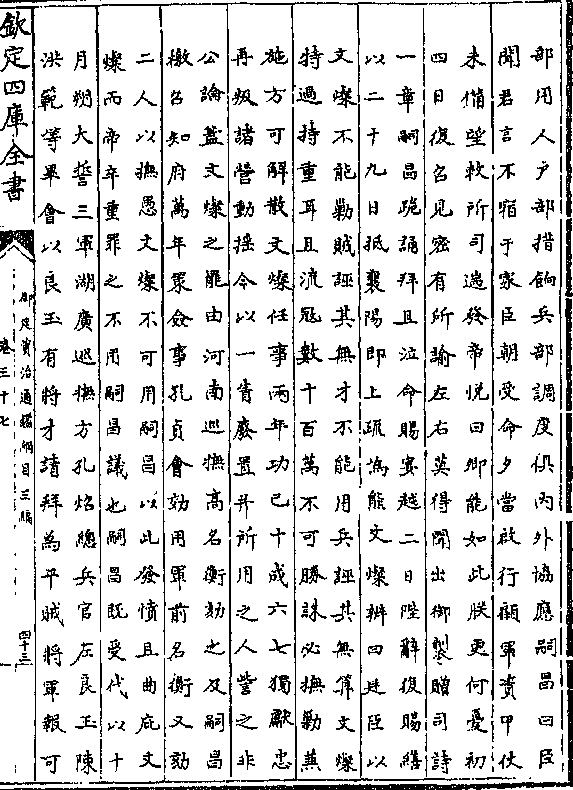 部用人户部措餉兵部調度俱内外協應嗣昌曰臣
聞君言不宿于家臣朝受命夕當啟行顧軍資甲仗
未備望敕所司遄發帝悦曰卿能如此朕更何憂初
四日復召見密有所諭左右莫得聞出御製贈司詩
一章嗣昌跪誦拜且泣命賜宴越二日陛辭復賜繕
以二十九日抵襄陽即上疏為熊文燦辨曰廷臣以
文燦不能勦賊誣其無才不能用兵誣其無算文燦
特過持重耳且流寇數十百萬不可勝誅必撫勦兼
施方可解散文燦任事兩年功已十成六七獨獻忠
再叛諸營動揺今以一眚廢置并所用之人訾之非
公論葢文燦之罷由河南巡撫高名衡劾之及嗣昌
檄召知府萬年策僉事孔貞會効用軍前名衡又劾
二人以撫愚文燦不可用嗣昌以此發憤且曲庇文
燦而帝卒重罪之不用嗣昌議也嗣昌既受代以十
月朔大誓三軍湖廣巡撫方孔炤總兵官左良玉陳
洪範等畢會以良玉有將才請拜為平賊將軍報可
欽定四庫全書
御定資治通鑑綱目三編
卷三十七
四十三